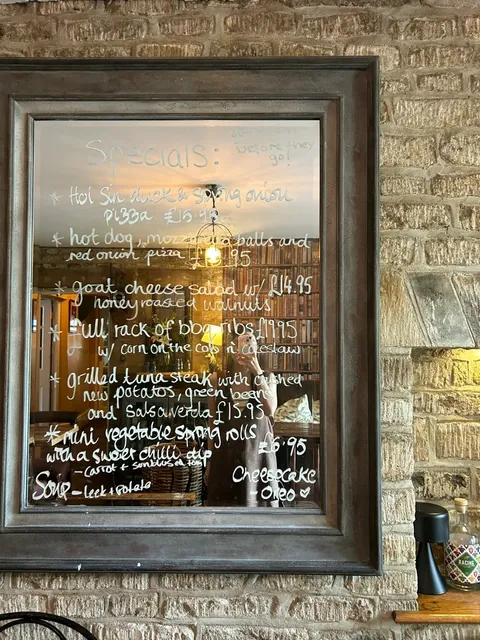 before they
go!
Specials:
* Hoi Sin duck & spring onion
pizza £15.95
* hot dog, mozzarella balls and
red onion pizza £ .95
* goat cheese salad w/ £14.95
honey roasted walnuts
* full rack of bbq ribs £19.95
w/ corn on the cob n' coleslaw
* grilled tuna steak with crushed
new potatos, green beans
and salsa verda £15.95
* mini vegetable spring rolls
with a sweet chilli dip £6.95
- carrot +
Soup - leek + potato
Cheesecake
- Oreo ♡
RACING